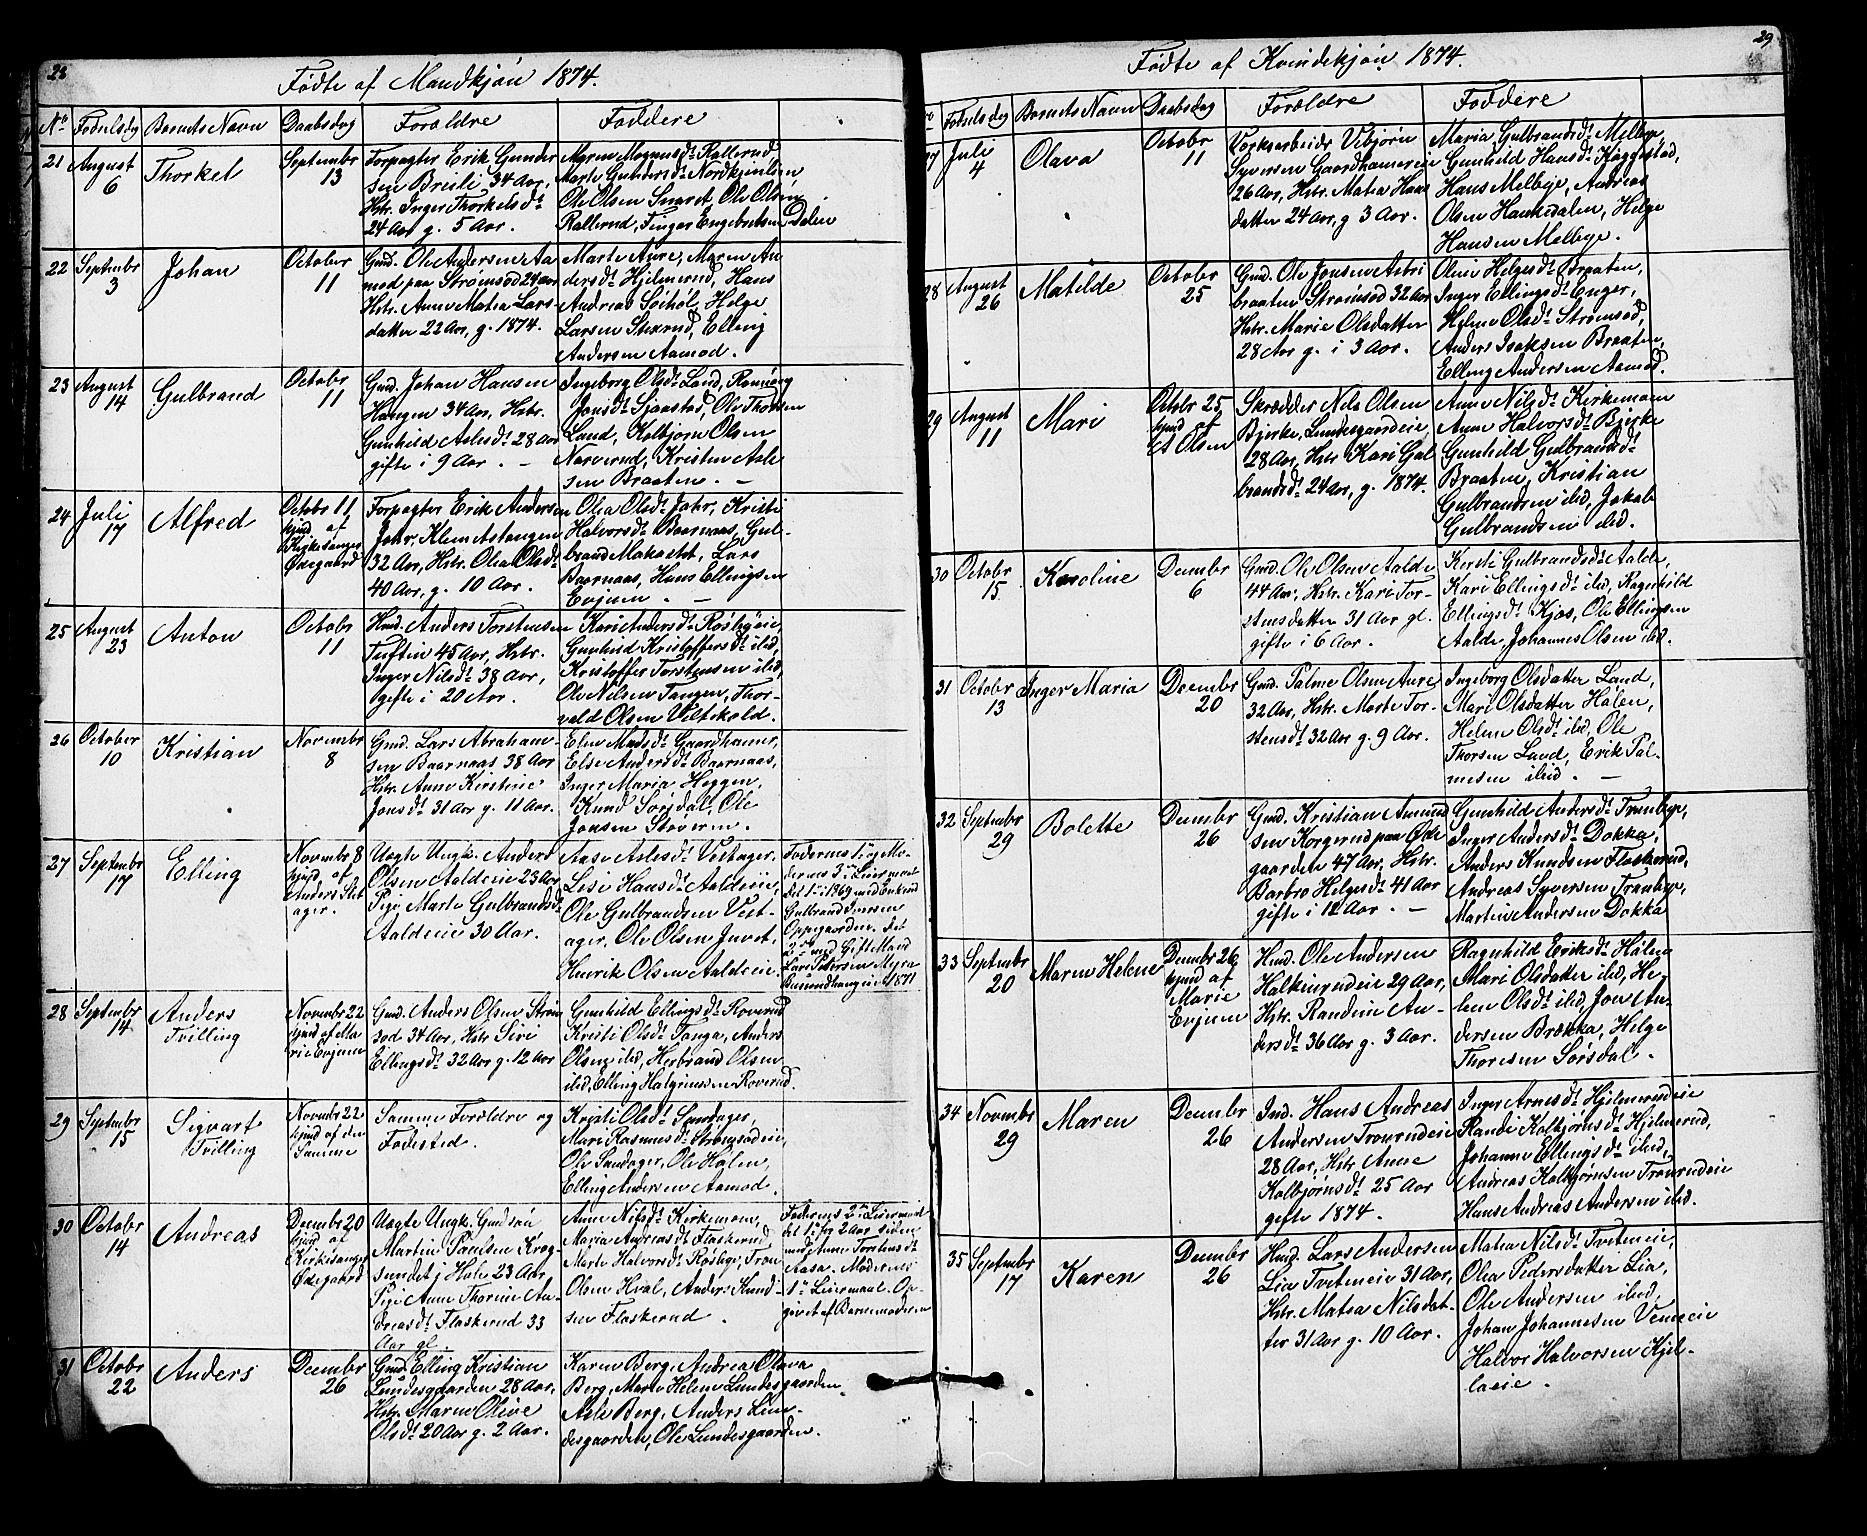 28
Fødte af Mandkjøn 1874.
No Fødselsdag Barnets Navn Daabsdag Forældre Faddere
21 August 6
Thorkel
Septembr 13
Forpagter Erik Gunder
sen Breili 34 Aar,
Hstr. Inger Thorkelsdt
24 Aar g. 5 Aar.
Maren Magnusdt Rallerud
Marte Gundersdt Nordkjenlien
Ole Olsen Snaret, Ole Olsen
Rallerud, Finger Engebretsen Dalen
22 Septembr 3
Johan
October 11
Gmd. Ole Andersen Aa
mod paa Strømsod 24 aar
Hstr. Anne Matea Lars
datter 22 Aar, g. 1874.
Marte Aure, Maren An
dersdt Hjelmerud, Hans
Andreas Seihól, Helge
Larsen Skarud, Elling
Andersen Aamod.
23 August 14
Gulbrand
Octobr 11
Gmd. Johan Hansen
Haugen 34 Aar, Hstr.
Gunhild Aslesdt 28 aar
gifte i 9 Aar. –
Ingeborg Olsdt Land, Rønnaug
Jonsdt Sjaastad, Ole Thorsen
Land, Kolbjørn Olsen
Narverud, Kristen Asle
sen Braaten. –
24 Juli 17
Alfred
Octobr 11
hjmd. af
Kirkesanger
Ødegaard
Forpagter Erik Andersen
Jahr, Klemetstangen
32 Aar, Hstr. Olea Olsdt
40 Aar, g. 10 Aar.
Olea Olsdt Jahr, Kristi
Halvorsdt Baarnaas, Gul-
brand Makastet, Lars
Baarnaas, Hans Ellingsen
Evjuen. –
25 August 23
Anton
Octobr 11
Hmd. Anders Torstensen
Tuften 45 Aar, Hstr.
Inger Nilsdt 38 Aar,
gifte i 20 Aar.
Kari Andersdt Røsbyeie
Gunhild Kristoffersdt ibid,
Kristoffer Torstensen ibid,
Ole Nilsen Tangen, Thor-
vald Olsen Viltikold.
26 October 10
Kristian
Novembr 8
Gmd. Lars Abraham-
sen Baarnaas 38 Aar
Hstr. Anne Kirstine
Jonsdt 31 Aar g. 11 Aar.
Elen Madsdt Gaardhamer,
Else Andersdt Baarnaas,
Inger Maria Heggen,
Knud Sørsdal, Ole
Jonsen Støveren.
27 Septembr 17
Elling
Novembr 8
hjmd. af
Anders Vest
ager.
Uægte Ungk. Anders
Olsen Aaldeeie 23 Aar
Pige Marte Gulbrandsdt
Aaldeeie 30 Aar.
Aase Aslesdt Vestager,
Lisi Hansdt Aaldeeie,
Ole Gulbrandsen Vest-
ager, Ole Olsen Juvet,
Henrik Olsen Aaldeeie.
Faderens 1ste og Mo-
derens 3die Leiermaal
det 1ste i 1869 med Enkmd
Gulbrand Iversen
Oppegaarden. det
2det med Gift Mand
Lars Pedersen Myra
1871
28 Septembr 14
Anders
Tvilling
Novembr 22
hjmd af Ma
rie Evjuen
Gmd. Anders Olsen Strøm
sod 34 Aar, Hstr Siri
Ellingsdt 32 Aar g. 12 Aar
Gunhild Ellingsdt Roverud
Kristi Olsdt Tanga, Anders
Olsen ibid, Herbrand Olsen
ibid, Elling Halgrimsen Roverud.
29 Septembr 15
Sigvart
Tvilling
Novembr 22
hjmd af den
Samme
Samme Forældre og
Fødested.
Kristi Olsdt Sandager,
Mari Rasmusdt Strømsodeie,
Ole Sandager, Ole Hølen,
Elling Andersen Aamod.
30 Octobr 14
Andreas
Decembr 20
hjmd af
Kirkesanger
Ødegaard
Uægte Ungk. Gmdsøn
Martin Paulsen Krog
sundet i Hole 23 Aar
Pige Anne Thorine An
dreasdt Flaskerud 33
Aar gl.
Anne Nilsdt Kirkemoen,
Maria Andreasdt Flaskerud
Marte Halvorsdt Røsbye, Tron
Olsen Hval, Anders Knud-
sen Flaskerud.
Faderens 2det Leiermaal
det 1ste for 2 Aar siden
med Anne Torstensdt
Aasa. Moderens
1ste Leiermaal. Op-
givet af Barnemoderen
31 Octobr 22
Anders
Decembr 26
Gmd. Elling Kristian
Lundesgaarden 28 Aar,
Hstr. Maren Olive
Olsdt 20 Aar g. 2 Aar.
Karen Berg, Andrea Olava
Berg, Marte Helene Lundesgaarden,
Asle Berg, Anders Lun-
desgaarden, Ole Lundesgaarden.
29
Fødte af Kvindekjøn 1874.
No Fødselsdag Barnets Navn Daabsdag Forældre Faddere
27 Juli 4
Olava
Octobr 11
Værksarbeider Vebjørn
Syversen Gaardhamereie
26 Aar, Hstr. Matea Hans
datter 24 Aar, g 3 Aar.
Maria Gulbrandsdt Melbye,
Gunhild Hansdt Kaggestad,
Hans Melbye, Andreas
Olsen Haukedalen, Helge
Hansen Melbye.
28 August 26
Matilde
October 25
Gmd. Ole Jonsen Astri
braaten Strømsod 32 Aar
Hstr. Marie Olsdatter
28 Aar g. i 3 Aar.
Oline Helgesdt Braaten,
Inger Ellingsdt Enger,
Helene Olsdt Strømsod,
Anders Isaksen Braaten,
Elling Andersen Aamod.
29 August 11
Mari
Octobr 25
hjmd af
A Olsen
Skrædder Nils Olsen
Bjerke, Lundesgaardeie
28 Aar, Hstr Kari Gul
brandsdt 24 Aar, g. 1874.
Anne Nilsdt Kirkemoen
Anne Halvorsdt Bjerke
Gunhild Gulbrandsdt
Braaten, Kristian
Gulbrandsen ibid, Jakob
Gulbrandsen ibid.
30 Octobr 15
Karoline
Decembr 6
Gmd. Ole Olsen Aalde
44 Aar, Hstr. Kari Tor-
stensdatter 31 Aar gl.
gifte i 6 Aar.
Kersti Gulbrandsdt Aalde,
Kari Ellingsdt ibid, Ragnhild
Ellingsdt Kjos, Ole Ellingsen
Aalde, Johannes Olsen ibid.
31 Octobr 13
Inger Maria
Decembr 20
Gmd. Palme Olsen Aure
32 Aar, Hstr. Marte Tor-
stensdt 32 Aar g. 9 Aar.
Ingeborg Olsdatter Land,
Mari Olsdatter Hølen,
Helene Olsdt ibid, Ole
Thorsen Land, Erik Pal-
mesen ibid. –
32 Septembr 29
Bolette
Decembr 26
Gmd. Kristian Amund
sen Korgerud paa Øde
gaarden 47 Aar, Hstr.
Barbro Helgesdt 41 Aar
gifte i 12 Aar. –
Gunhild Andersdt Tranbye,
Inger Andersdt Dokka,
Anders Knudsen Flaskerud,
Andreas Syversen Tranbye,
Martin Andersen Dokka
33 Septembr 20
Maren Helene
Decembr 26
hjmd af
Marie
Evjuen
Hmd. Ole Andersen
Halkinrudeie 29 Aar,
Hstr. Randine An-
dersdt 36 Aar g. 3 Aar.
Ragnhild Eriksdt Hølen
Mari Olsdatter ibid, He-
lene Olsdt ibid, Jon An-
dersen Brækka, Helge
Thoresen Sørsdal.
34 Novembr 29
Maren
Decembr 26
Ind. Hans Andreas
Andersen Tronrudeie
28 Aar, Hstr. Anne
Kolbjørnsdt 25 Aar
gifte 1874.
Inger Arnesdt Hjelmerudeie
Randi Kolbjørnsdt Hjelmerud,
Johanne Ellingsdt ibid,
Andreas Kolbjørnsen Tronrudeie
Hans Andreas Andersen ibid.
35 Septembr 17
Karen
Decembr 26
Hmd. Lars Andersen
Lia Tveteneie 31 Aar,
Hstr. Matea Nilsdat-
ter 31 Aar g. 10 Aar.
Matea Nilsdt Tveteneie,
Olea Pedersdatter Lia,
Ole Andersen ibid,
Johan Johannesen Vemeeie
Halvor Halvorsen Kjel-
laeie.